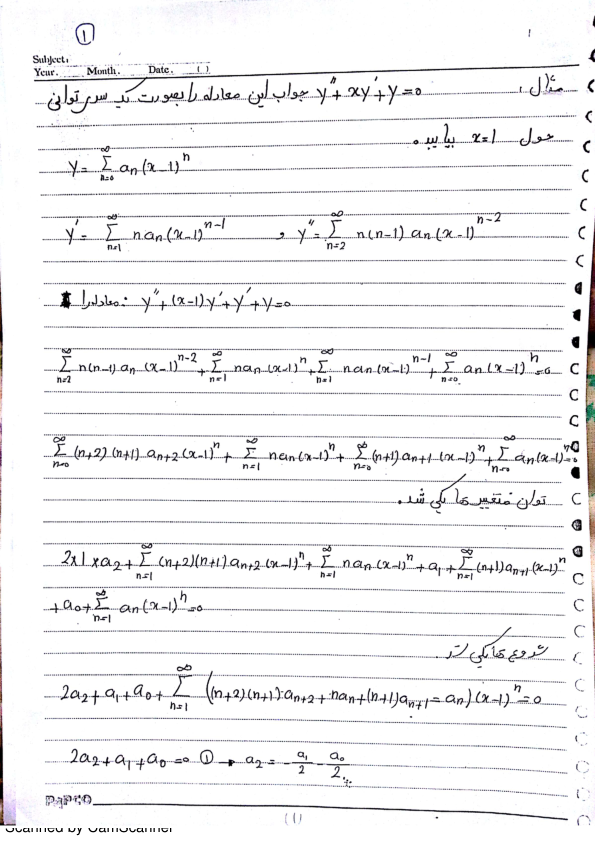 ①
Subject:
Year. Month. Date. ( )
مثال: y″ + xy′ + y = 0 جواب این معادله را بصورت یک سری توانی
حول x=1 بیابید.
y = ∑_{n=0}^{∞} aₙ(x-1)^n
y′ = ∑_{n=1}^{∞} naₙ(x-1)^{n-1} و y″ = ∑_{n=2}^{∞} n(n-1) aₙ(x-1)^{n-2}
معادله را: y″ + (x-1)y′ + y′ + y = 0
∑_{n=2}^{∞} n(n-1) aₙ (x-1)^{n-2} + ∑_{n=1}^{∞} naₙ(x-1)^n + ∑_{n=1}^{∞} naₙ(x-1)^{n-1} + ∑_{n=0}^{∞} aₙ(x-1)^n = 0
∑_{n=0}^{∞} (n+2)(n+1) a_{n+2}(x-1)^n + ∑_{n=1}^{∞} naₙ(x-1)^n + ∑_{n=0}^{∞} (n+1)a_{n+1}(x-1)^n + ∑_{n=0}^{∞} aₙ(x-1)^n = 0
توان متغییر ها یکی شد.
2×1×a₂ + ∑_{n=1}^{∞} (n+2)(n+1)a_{n+2}(x-1)^n + ∑_{n=1}^{∞} naₙ(x-1)^n + a₁ + ∑_{n=1}^{∞} (n+1)a_{n+1}(x-1)^n
+ a₀ + ∑_{n=1}^{∞} aₙ(x-1)^n = 0
شروع ها یکی شد.
2a₂ + a₁ + a₀ + ∑_{n=1}^{∞} ((n+2)(n+1)a_{n+2} + naₙ + (n+1)a_{n+1} = aₙ)(x-1)^n = 0
2a₂ + a₁ + a₀ = 0 ① → a₂ = -a₁/2 - a₀/2
PAPCO
(1)
Scanned by CamScanner